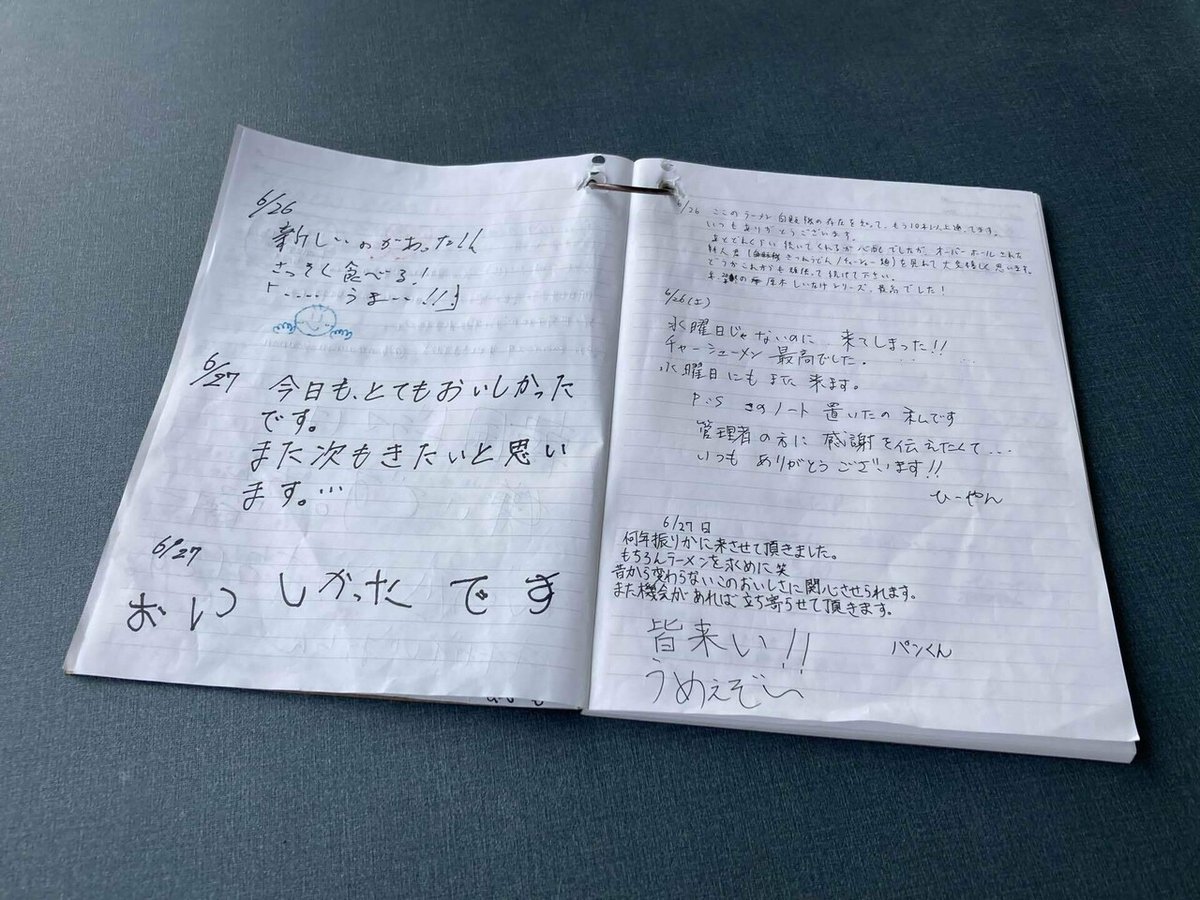 6/26
新しいのがわったしん
さっそく食べる!
「..... うまーー!!!」
6/27
今日も、とてもおいしかった
です。
また次もきたいと思い
ます。…
6/27
おいしかった です
6/26 ここのラーメン自販機の存在を知って、もう10年以上通ってます。
いつもありがとうございます。
あとどれくらい続いてくれるか心配でしたが、オーバーホールされた
新人君(きつねうどん/チャーシュー麺)を見れて大変嬉しく思います。
どうかこれからも頑張って続けて下さい。
厚木しいたけシリーズ、最高でした!
6/26(土)
水曜日じゃないのに、来てしまった!!
チャーシューメン 最高でした. ... ...
水曜日にもまた来ます。
P.S このノート 置いたの 私です
管理者の方に 感謝を伝えたくて…
いつも ありがとうございます!!
ひーやん
6/27日
何年振りかに来させて頂きました。
もちろんラーメンを求めに笑
昔から変わらないこのおいしさに関心させられます。
また機会があれば立ち寄らせて頂きます。
パンくん
皆来い!!
うめぇぞ〜